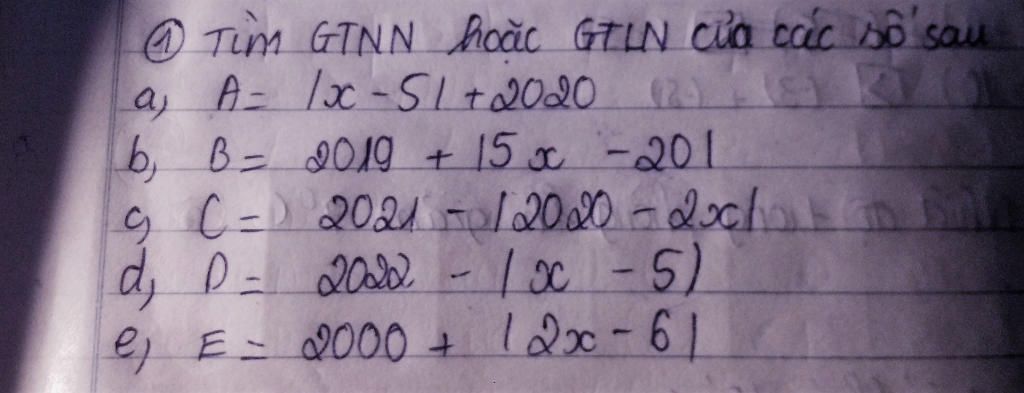 ① Tìm GTNN hoặc GTLN của các số sau
a, A = |x - 5| + 2020
b, B = 2019 + |5x - 20|
c, C = 2021 - |2020 - 2x|
d, D = 2022 - |x - 5|
e, E = 2000 + |2x - 6|